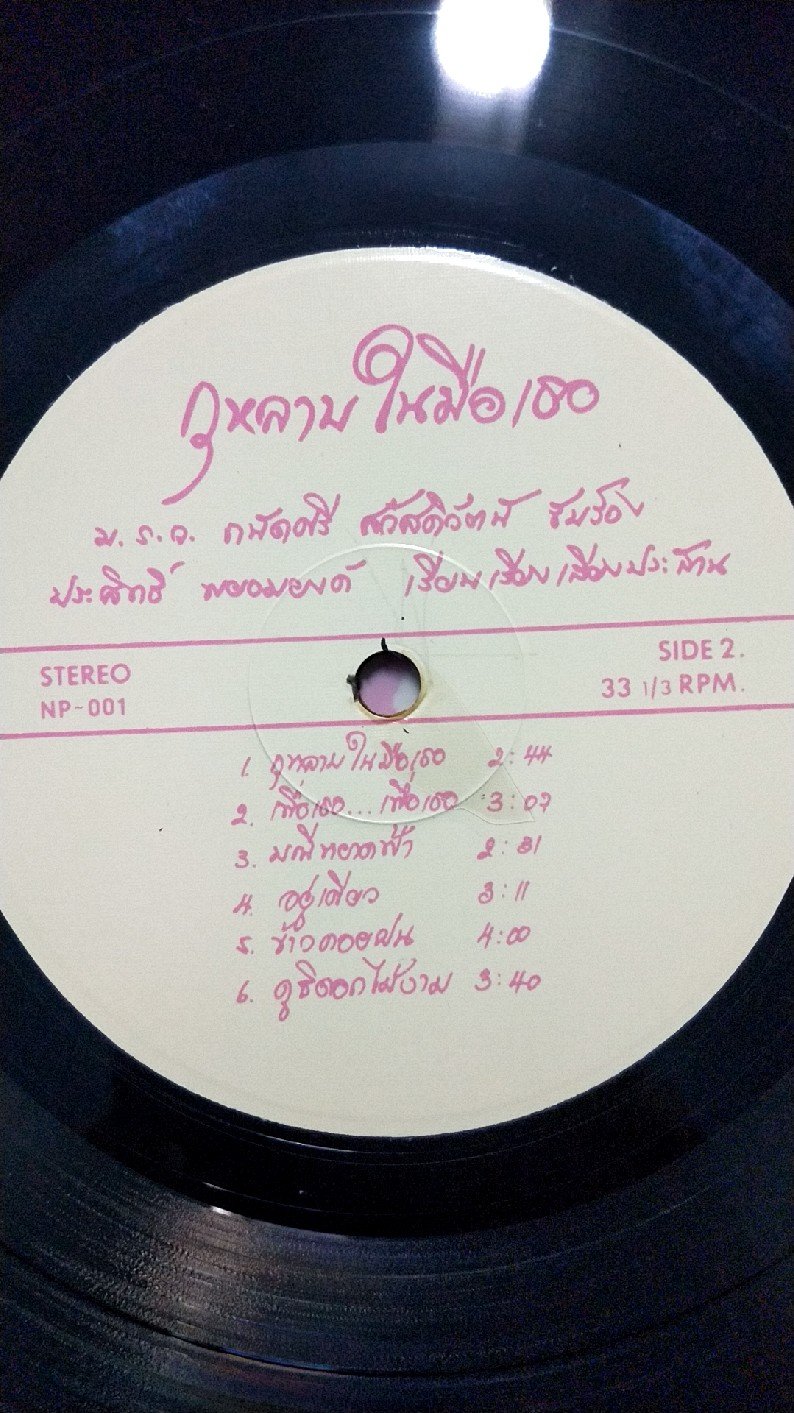 กุหลาบในมือเธอ
ม.ร.ว. ถนัดศรี สวัสดิวัตน์ ขับร้อง
ประสิทธิ์ พยอมยงค์ เรียบเรียงเสียงประสาน
STEREO
NP-001
SIDE 2.
33 1/3 RPM.
1. กุหลาบในมือเธอ 2:44
2. เพื่อเธอ...เพื่อเธอ 3:07
3. มณีหยาดฟ้า 2:31
4. อยู่เดียว 3:11
5. ข้าวคอยฝน 4:00
6. ดูซิดอกไม้งาม 3:40